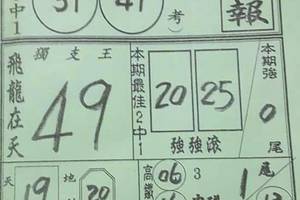 中1
31 41
考
報
飛龍在天
獨支王
49
本期最佳2中1
20 25
強強滾
本期強
0
尾
天
19
地
20
高鐵
06
3
1
尾